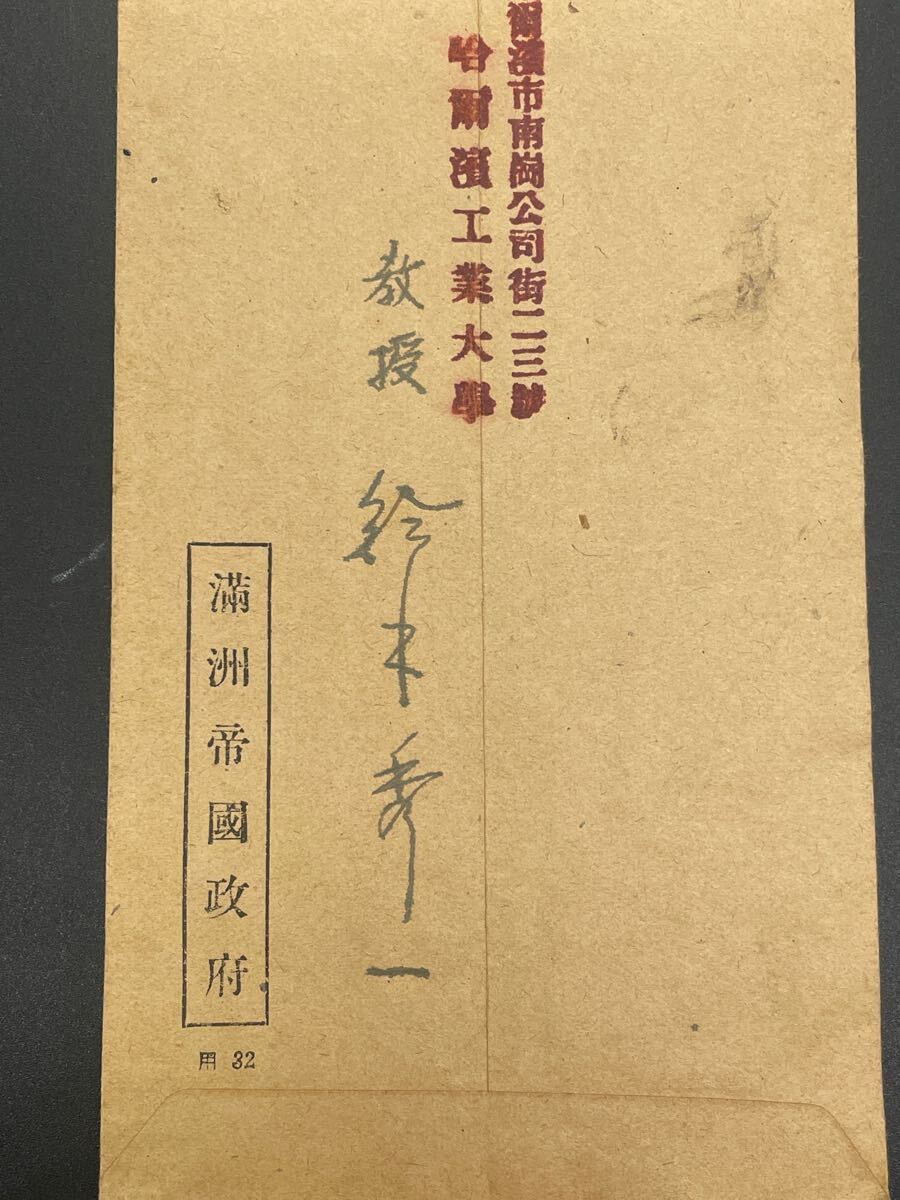 爾濱市南崗公司街二三號
哈爾濱工業大學
教授 鈴木秀一
滿洲帝國政府
用 32